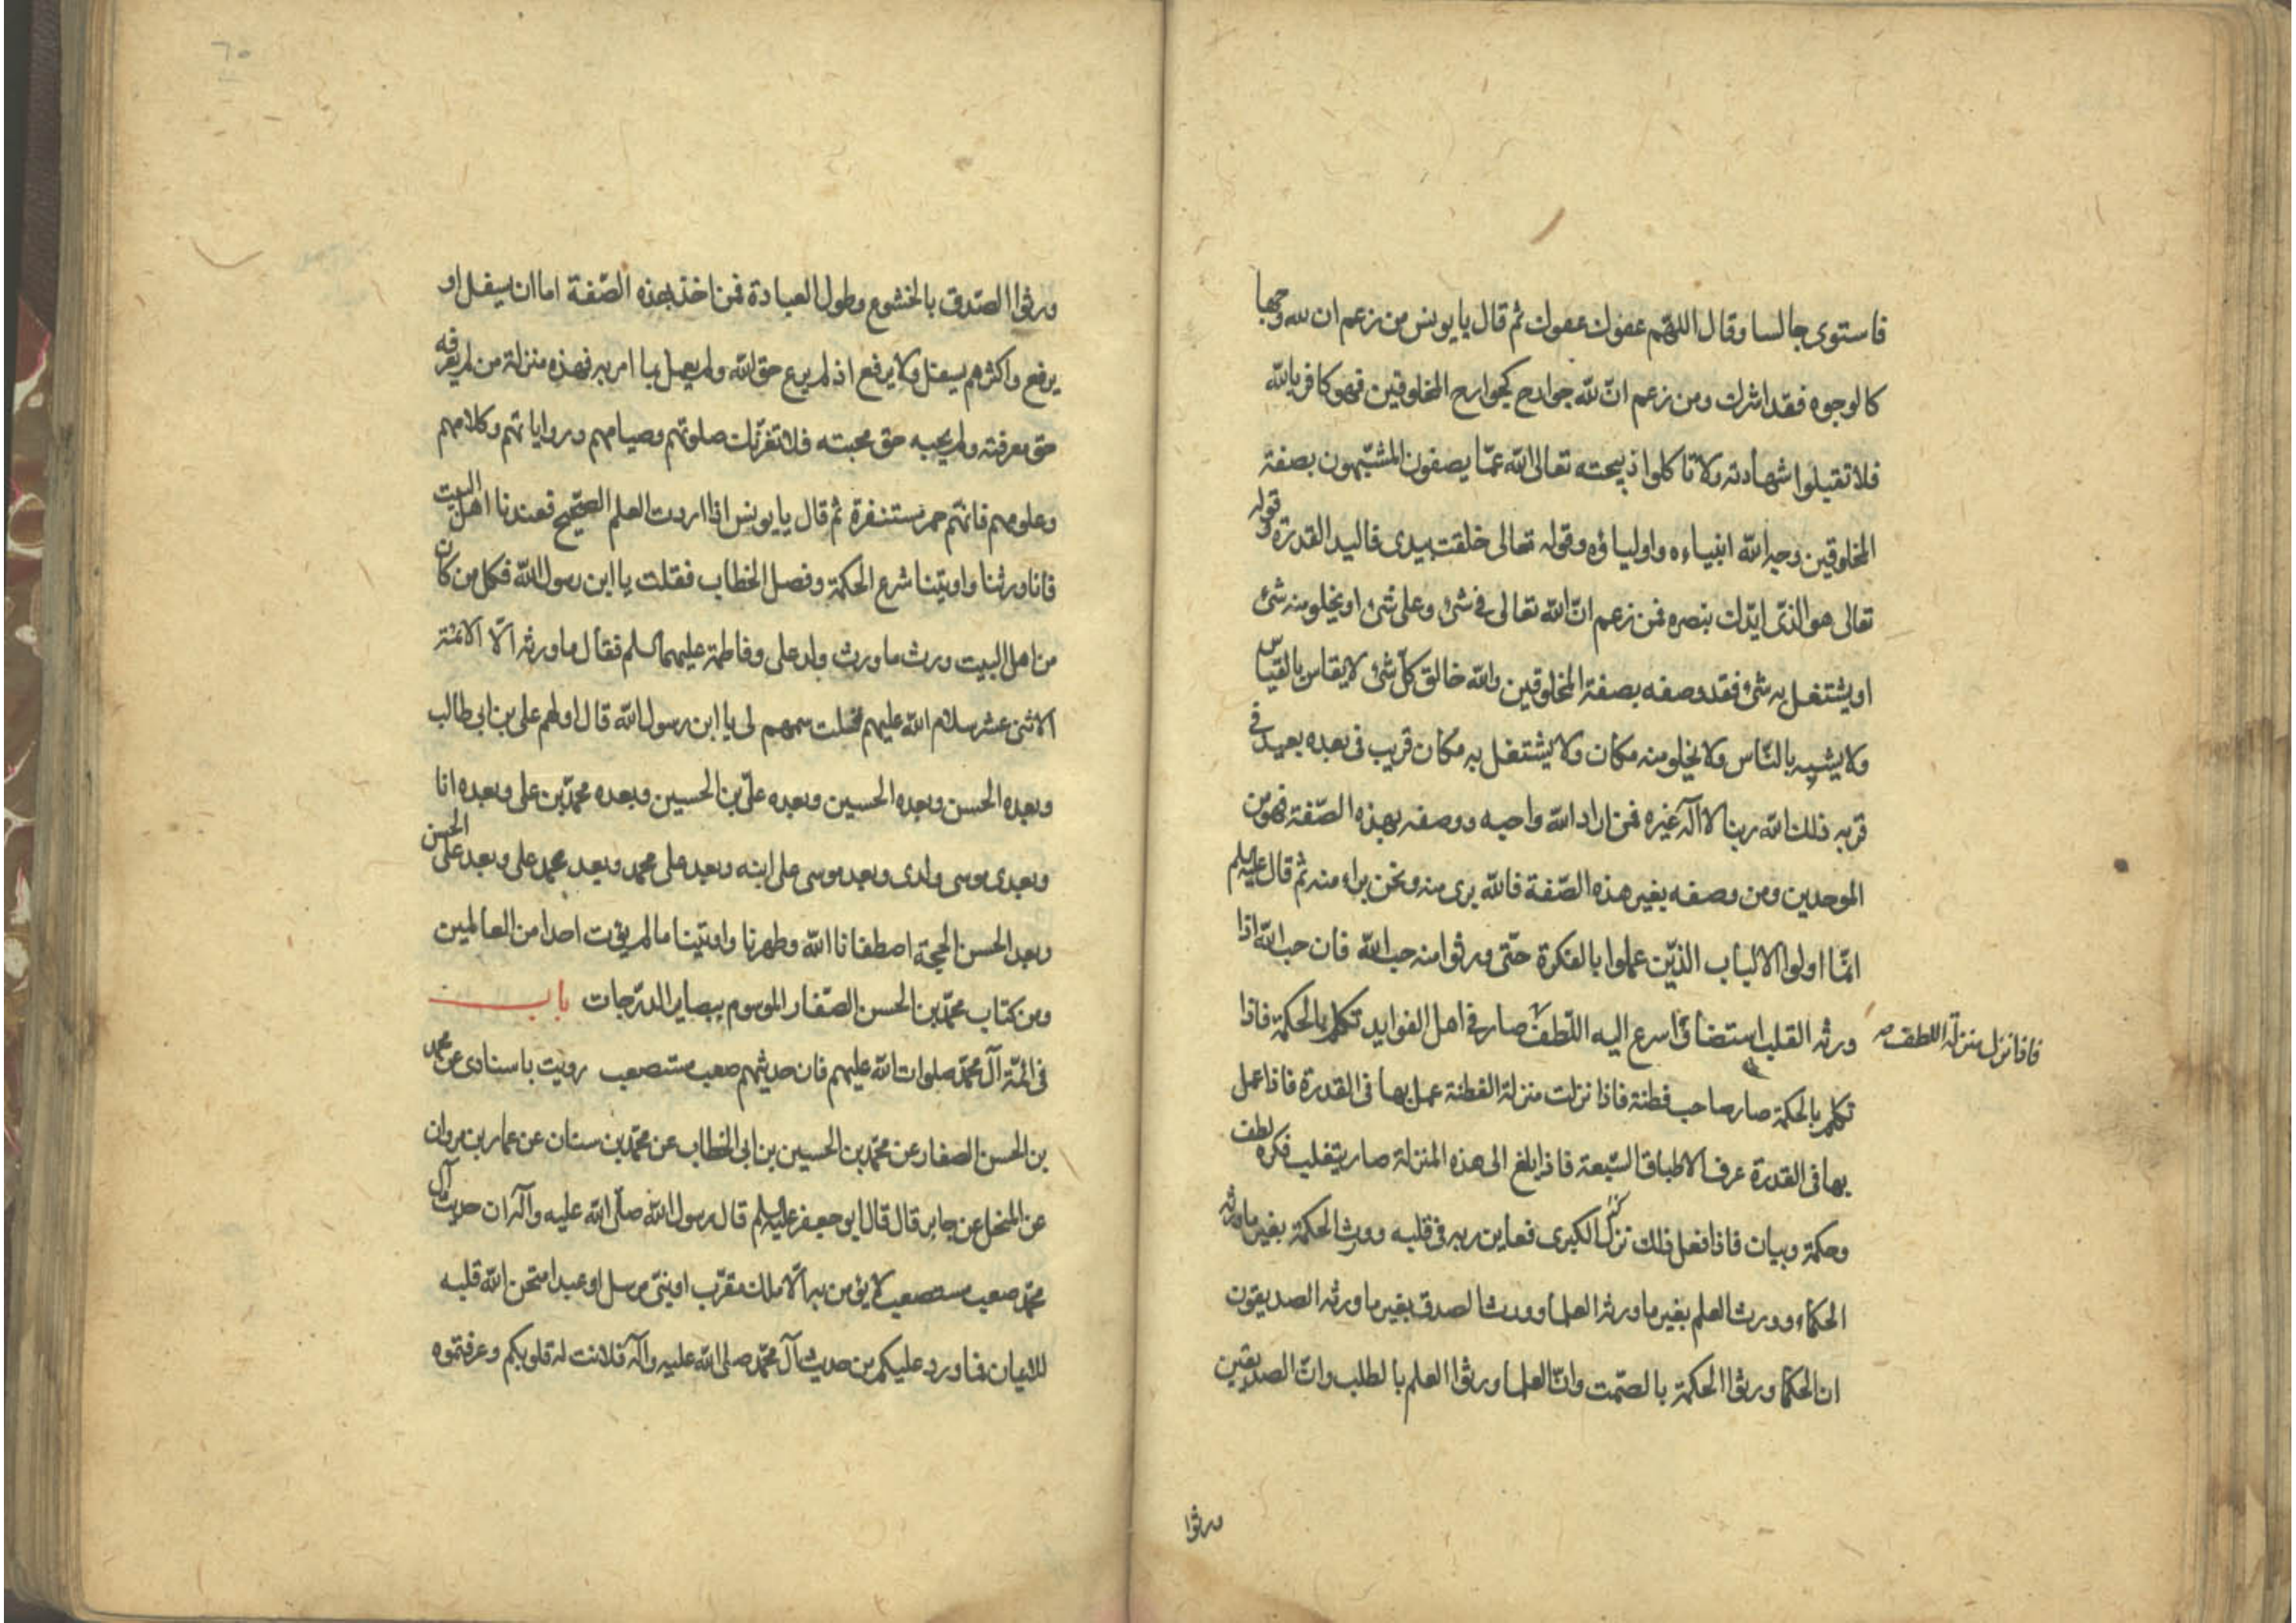 فاستوى جالسا وقال اللهم عفوك عفوك ثم قال يا يونس من زعم ان لله وجها
كالوجوه فقد اشرك ومن زعم انّ لله جوارح كجوارح المخلوقين فهو كافر بالله
فلا تقبلوا شهادته ولا تاكلوا ذبيحته تعالى الله عمّا يصفون المشبّهون بصفة
المخلوقين وجه الله انبياءه واولياؤه وقوله تعالى خلقت بيدى فاليد القدرة وقوله
تعالى هو الذى ايدك بنصره فمن زعم انّ الله تعالى فى شئ وعلى شئ او يخلو منه شئ
او يشتغل به شئ فقد وصفه بصفة المخلوقين والله خالق كل شئ لا يقاس بالقياس
ولا يشبه بالنّاس ولا يخلو منه مكان ولا يشتغل به مكان قريب فى بعده بعيد فى
قربه ذلك الله ربنا لا اله غيره فمن اراد الله واحبه ووصفه بهذه الصّفة فهو من
الموحدين ومن وصفه بغير هذه الصّفة فالله برى منه ونحن براء منه ثم قال عليه السلم
انّما اولوا الالباب الذين عملوا بالفكرة حتّى ورثوا منه حب الله فان حب الله اذا
ورثه القلب استضاء واسرع اليه اللّطف صار فى اهل الفوايد تكلم بالحكمة فاذا
فاذا نزل منزلة اللطف صح
تكلم بالحكمة صار صاحب فطنة فاذا نزلت منزلة الفطنة عمل بها فى القدرة فاذا عمل
بها فى القدرة عرف الاطباق السّبعة فاذا بلغ الى هذه المنزلة صار يتقلب فكره لطف
وحكمة وبيان فاذا فعل ذلك نزل الكبرى فعاين ربه فى قلبه وورث الحكمة بغير ما ورثه
الحكماء وورث العلم بغير ما ورثه العلما وورث الصدق بغير ما ورثه الصديقون
ان الحكما ورثوا الحكمة بالصّمت وانّ العلما ورثوا العلم بالطلب وانّ الصديقين
ورثوا
٦٥
ورثوا الصّدق بالخشوع وطول العبادة فمن اخذ بهذه الصّفة اما ان يسفل او
يرفع واكثرهم يسفل ولا يرفع اذ لم يرع حق الله ولم يعمل بما امر به فهذه منزلة من لم يعرفه
حق معرفته ولم يحبه حق محبته فلا تغرّنك صلوتهم وصيامهم ورواياتهم وكلامهم
وعلومهم فانّهم حمر مستنفرة ثم قال يا يونس اذا اردت العلم الصّحيح فعندنا اهل البيت
فانا ورثنا واوتينا شرع الحكمة وفصل الخطاب فقلت يا ابن رسول الله فكل من كان
من اهل البيت ورث ما ورث ولد على وفاطمة عليهما السلم فقال ما ورثه الّا الائمّة
الاثنى عشر سلام الله عليهم فقلت سمهم لى يا ابن رسول الله قال اولهم على بن ابى طالب
وبعده الحسن وبعده الحسين وبعده علىّ بن الحسين وبعده محمّد بن على وبعده انا
وبعدى موسى ولدى وبعد موسى على ابنه وبعد على محمد وبعد محمد على وبعد على الحسن
وبعد الحسن الحجة اصطفانا الله وطهرنا واوتينا ما لم يؤت احدا من العالمين
ومن كتاب محمّد بن الحسن الصّفار الموسوم ببصاير الدّرجات باب
فى ائمّة آل محمّد صلوات الله عليهم فان حديثهم صعب مستصعب رويت باسنادى عن محمد
بن الحسن الصفار عن محمّد بن الحسين بن ابى الخطاب عن محمّد بن سنان عن عمار بن مروان
عن المنخل عن جابر قال قال ابو جعفر عليه السلم قال رسول الله صلّى الله عليه وآله ان حديث آل
محمّد صعب مستصعب لا يؤمن به الّا ملك مقرّب او نبىّ مرسل او عبد امتحن الله قلبه
للايمان فما ورد عليكم من حديث آل محمّد صلى الله عليه وآله فلانت له قلوبكم وعرفتموه